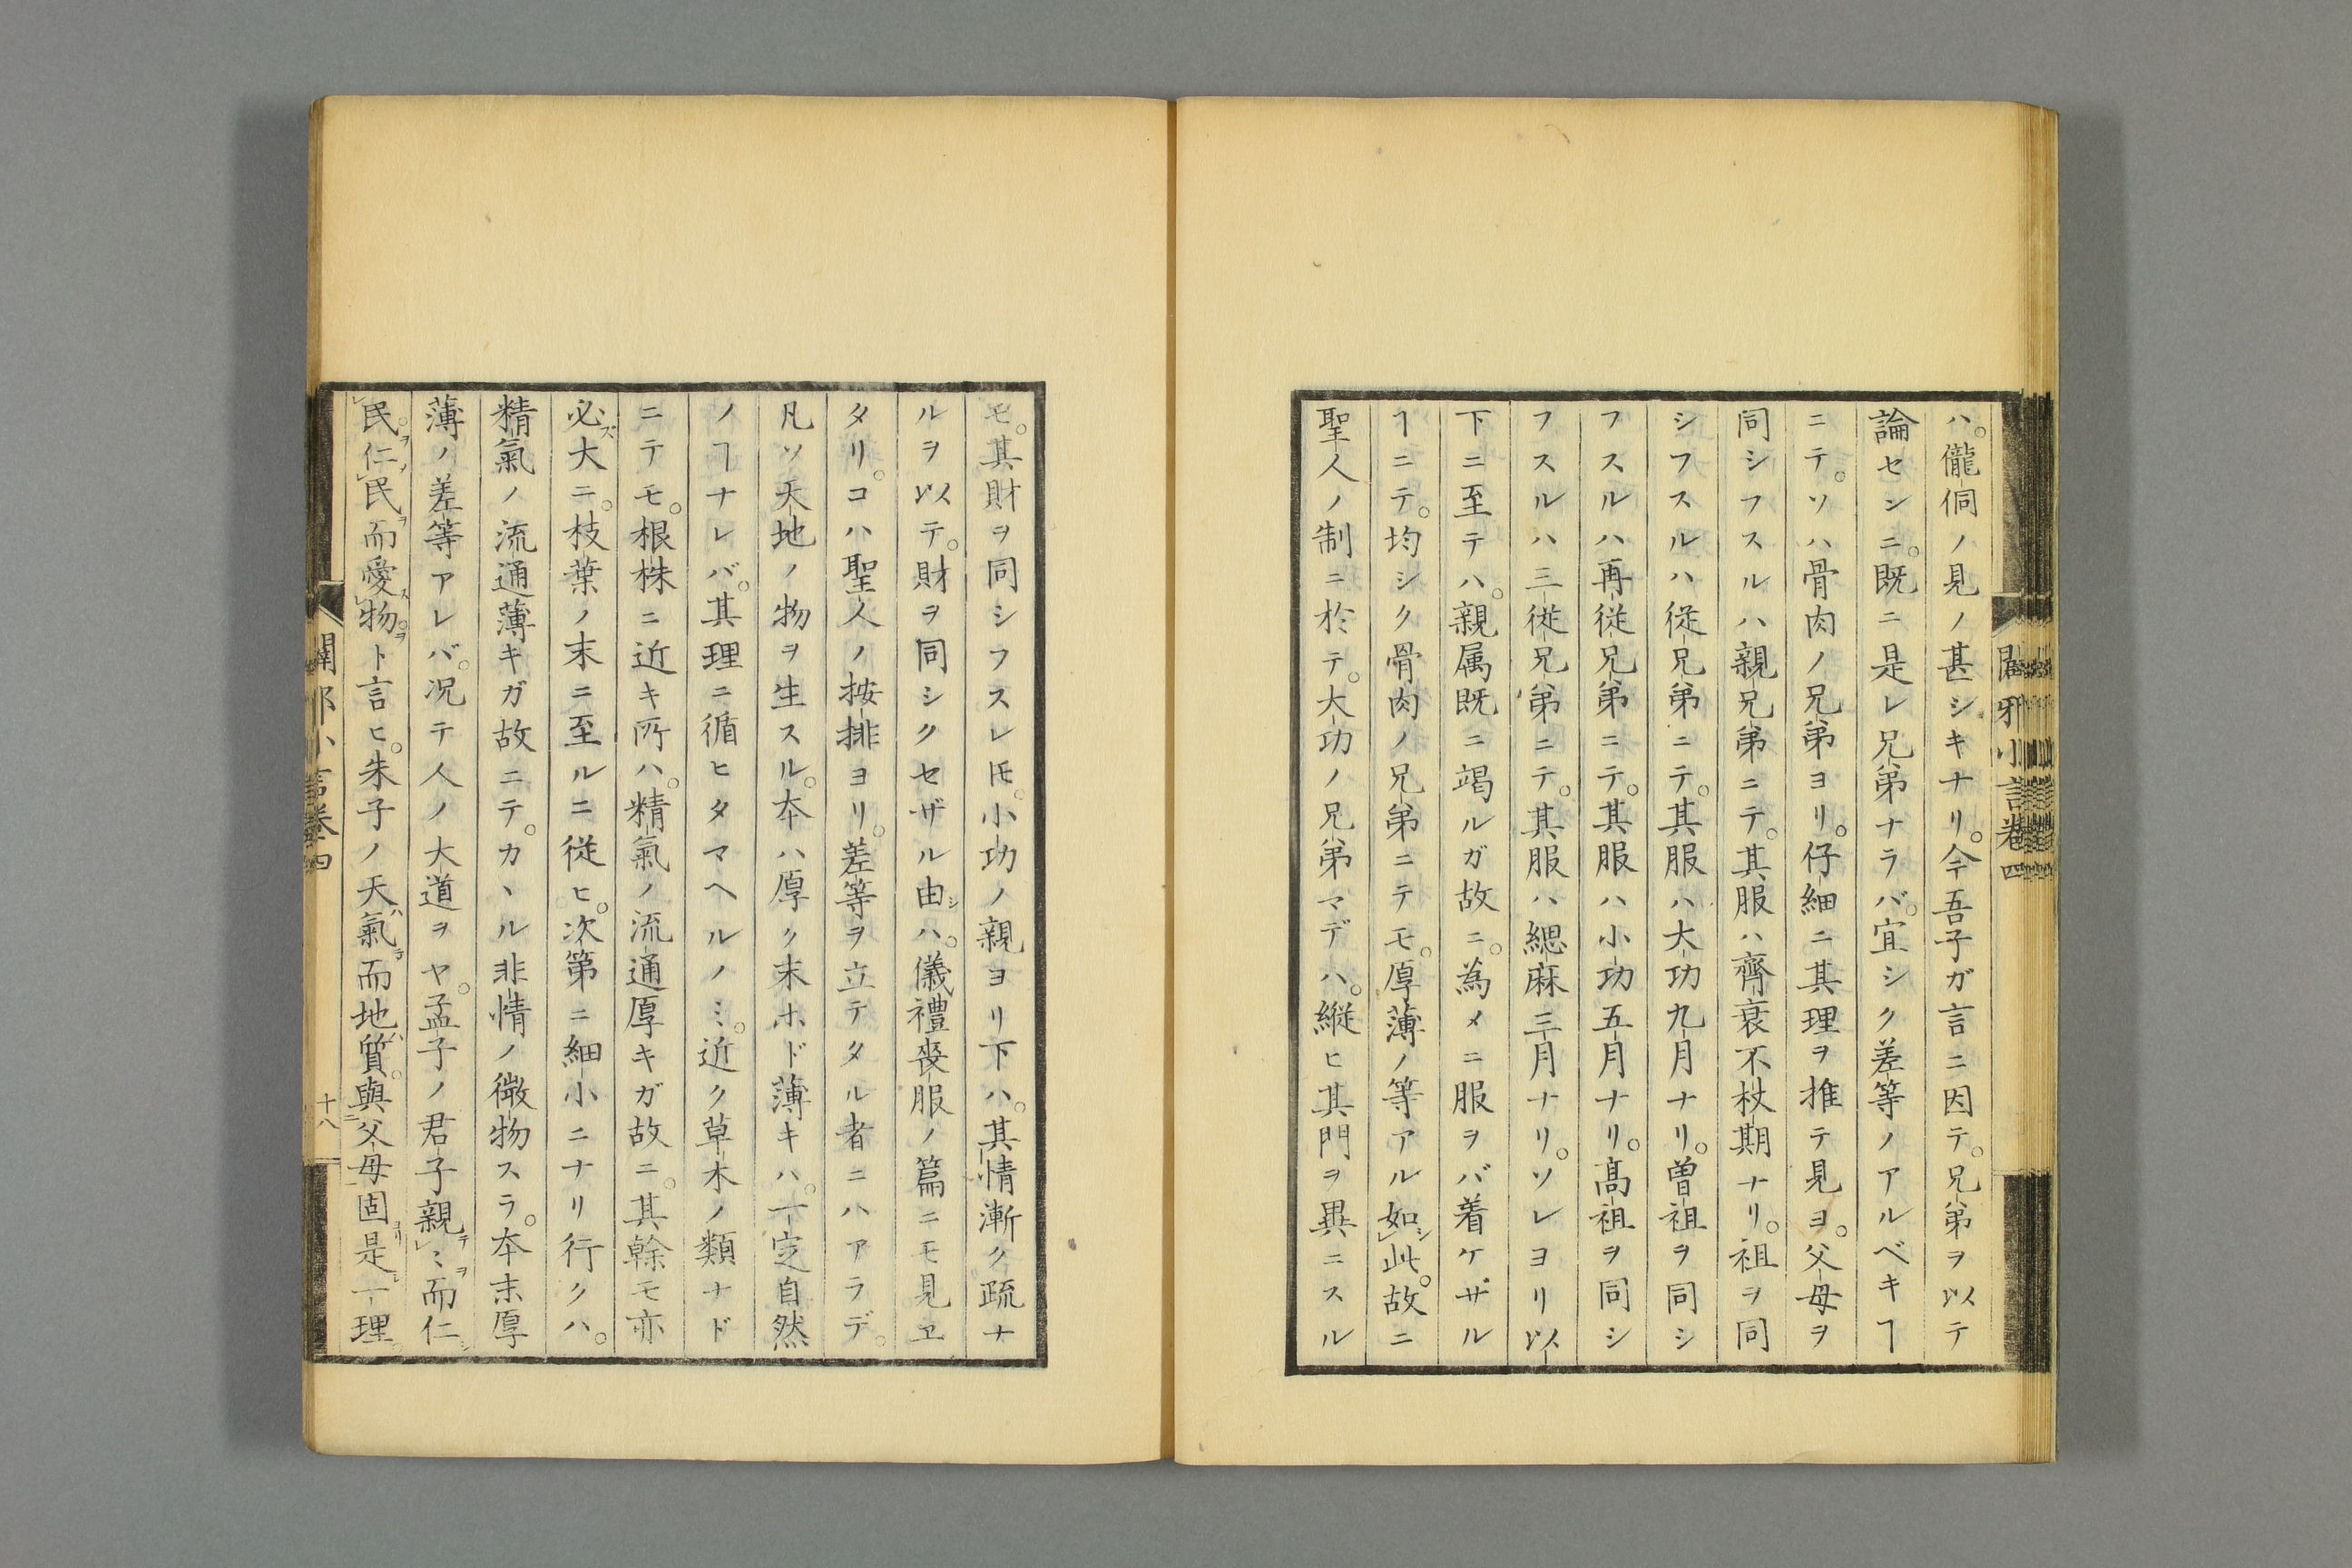 ハ。儱侗ノ見ノ甚シキナリ。今吾子ガ言ニ因テ。兄弟ヲ以テ
論センニ。既ニ是レ兄弟ナラバ。宜シク差等ノアルベキヿ
ニテ。ソハ骨肉ノ兄弟ヨリ。仔細ニ其理ヲ推テ見ヨ。父母ヲ
同シフスルハ親兄弟ニテ。其服ハ齊衰不杖期ナリ。祖ヲ同
シフスルハ従兄弟ニテ。其服ハ大功九月ナリ。曽祖ヲ同シ
フスルハ再従兄弟ニテ。其服ハ小功五月ナリ。髙祖ヲ同シ
フスルハ三従兄弟ニテ。其服ハ緦麻三月ナリ。ソレヨリ以
下ニ至テハ。親属既ニ竭ルガ故ニ。為メニ服ヲバ着ケザル
ヿニテ。均シク骨肉ノ兄弟ニテモ。厚薄ノ等アル如シ此。故ニ
聖人ノ制ニ於テ。大功ノ兄弟マデハ。縦ヒ其門ヲ異ニスル
闢邪小言巻四
モ。其財ヲ同シフスレ𪜈。小功ノ親ヨリ下ハ。其情漸ク疏ナ
ルヲ以テ。財ヲ同シクセザル由シハ。儀禮喪服ノ篇ニモ見ヱ
タリ。コハ聖人ノ按排ヨリ。差等ヲ立テタル者ニハアラデ。
凡ソ天地ノ物ヲ生スル。本ハ厚ク末ホド薄キハ。一定自然
ノヿナレバ。其理ニ循ヒタマヘルノミ。近ク草木ノ類ナド
ニテモ。根株ニ近キ所ハ。精氣ノ流通厚キガ故ニ。其幹モ亦
必ズ大ニ。枝葉ノ末ニ至ルニ従ヒ。次第ニ細小ニナリ行クハ。
精氣ノ流通薄キガ故ニテ。カヽル非情ノ微物スラ。本末厚
薄ノ差等アレバ。况テ人ノ大道ヲヤ。孟子ノ君子親テミヲ而仁シ
民。ヲ仁ノ民ヲ而愛ス物。ヲト言ヒ。朱子ノ天ハ氣ヲ而地ハ質。與ニ父母固ヨリ是レ一理。
闢邪小言巻四
十八